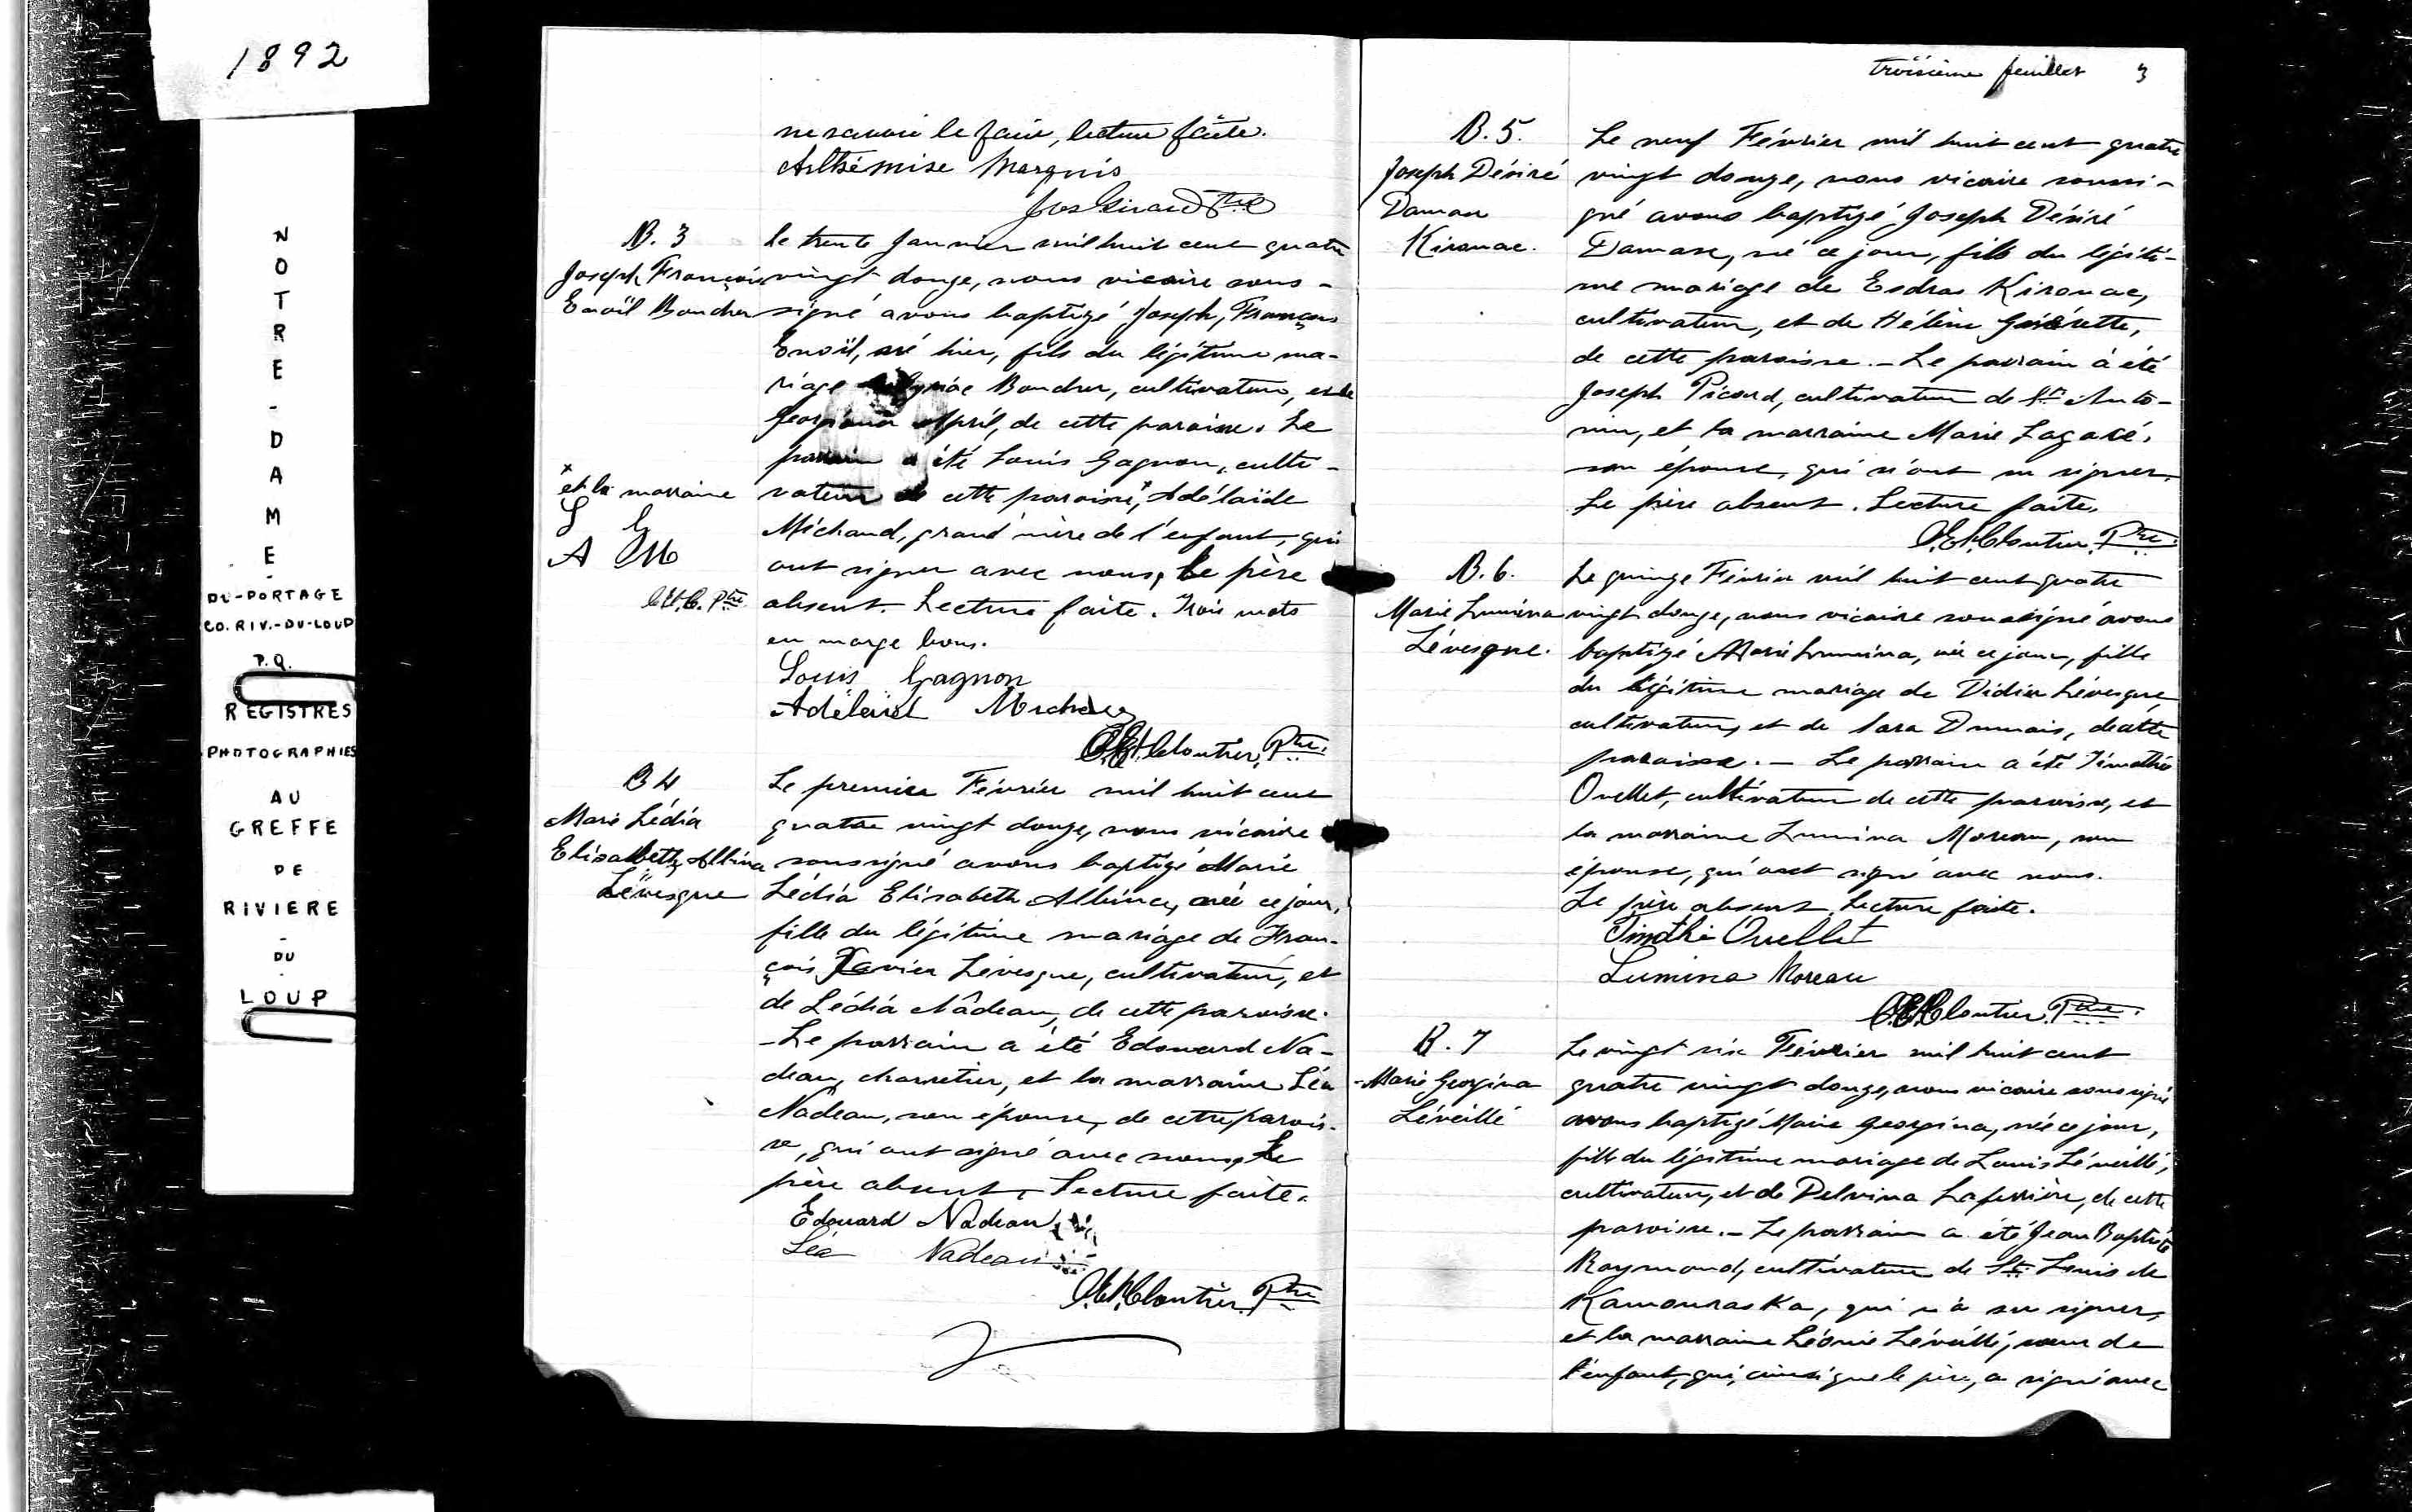 1892
NOTRE-DAME-
DU-PORTAGE
CO. RIV.-DU-LOUP
P.Q.
REGISTRES
PHOTOGRAPHIES
AU
GREFFE
DE
RIVIERE
-
DU
-
LOUP
ne savoir le faire, lecture faite.
Arthémise Marquis
Jos Girard Ptre
B. 3
Joseph François
Enoïl Boucher
le trente Janvier mil huit cent quatre
vingt douze, nous vicaire sous-
signé avons baptizé Joseph, François
Enoïl, né hier, fils du légitime ma-
riage Boucher, cultivateur, et de
Georgiana April, de cette paroisse. Le
parrain a été Louis Gagnon, culti-
x
et la marraine
L G
A M
C.E.H.C. Ptre
vateur de cette paroisse x, Adélaïde
Michaud, grand'mère de l'enfant, qui
ont signer avec nous, Le père
absent. Lecture faite. Trois mots
en marge bons.
Louis Gagnon
Adélaid Michau
Cloutier, Ptre.
B 4
Marie Lédia
Elisabeth Albina
Lévesque
Le premier Février mil huit cent
quatre vingt douze, nous vicaire
soussigné avons baptizé Marie
Lédia Elisabeth Albina, née ce jour,
fille du légitime mariage de Fran-
çois Xavier Lévesque, cultivateur, et
de Lédia Nâdeau, de cette paroisse.
-Le parrain a été Edouard Na-
deau, charretier, et la marraine Léa
Nâdeau, son épouse, de cette parois-
se, qui ont signé avec nous, Le
père absent, Lecture faite.
Edouard Nadeau
Léa Nadeau
Cloutier, Ptre
troisième feuillet 3
B. 5.
Joseph Désiré
Damase
Kirouac.
Le neuf Février mil huit cent quatre
vingt douze, nous vicaire soussi-
gné avons baptizé Joseph Désiré
Damase, né ce jour, fils du légiti-
me mariage de Esdras Kirouac,
cultivateur, et de Hélène
de cette paroisse.- Le parrain a été
Joseph Picard, cultivateur de St Anto-
nin, et la marraine Marie Lagacé,
son épouse, qui n'ont su signer.
Le père absent. Lecture faite.
Cloutier, Ptre.
B. 6.
Marie Lumina
Lévesque.
Le quinze Février mil huit cent quatre
vingt douze, nous vicaire soussigné avons
baptizé Marie Lumina, née ce jour, fille
du légitime mariage de Didier Lévesque,
cultivateur, et de Sara Dumais, de cette
paroisse. - Le parrain a été Timothé
Ouellet, cultivateur de cette paroisse, et
la marraine Lumina Moreau, son
épouse, qui ont signé avec nous.
Le père absent, Lecture faite.
Timothé Ouellet
Lumina Moreau
Cloutier, Ptre.
B. 7
-Marie Georgina
Léveillé
Le vingt six Février mil huit cent
quatre vingt douze, nous vicaire soussigné
avons baptizé Marie Georgina, née ce jour,
fille du légitime mariage de Louis Léveillé,
cultivateur, et de Delvina Laferrière, de cette
paroisse.- Le parrain a été Jean Baptiste
Raymond, cultivateur de St. Louis de
Kamouraska, qui n'a su signer,
et la marraine Léonie Léveillé, soeur de
l'enfant, qui, ainsi que le père, a signé avec